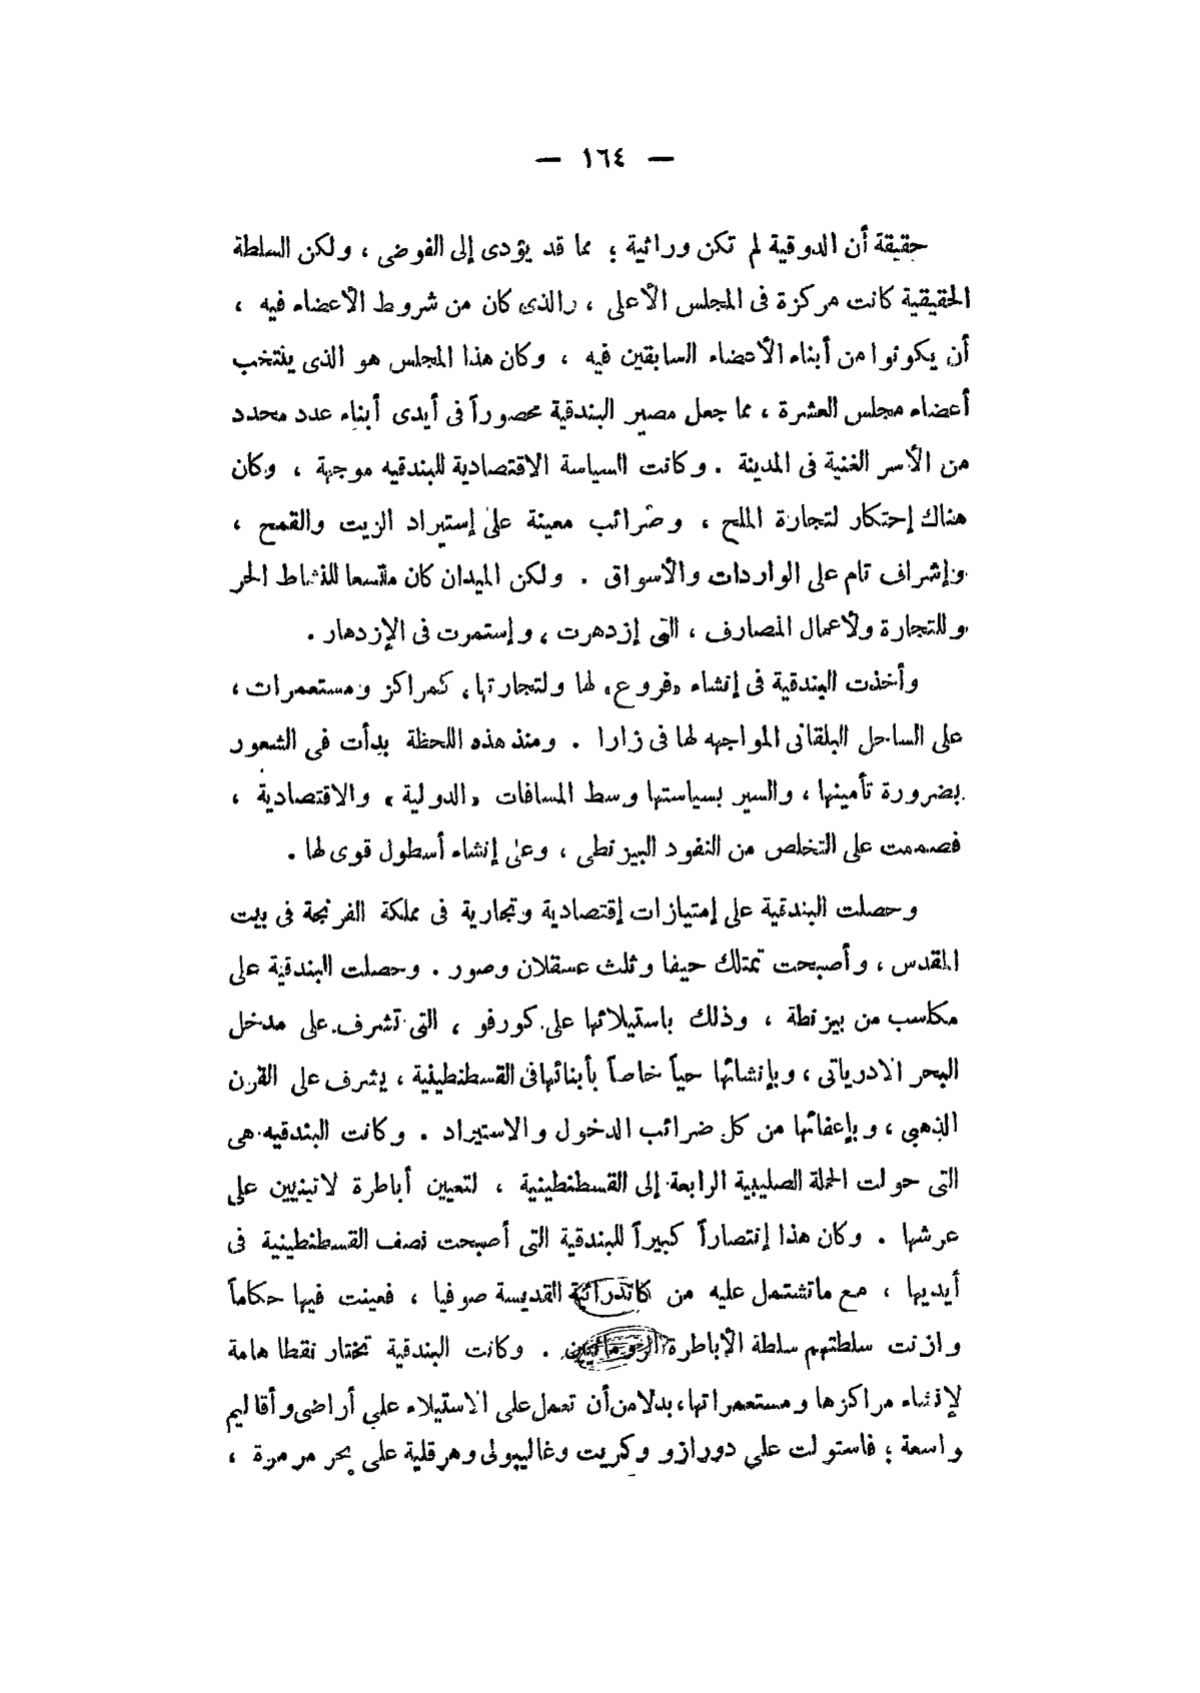 — ١٦٤ —
حقيقة أن الدوقية لم تكن وراثية ؛ مما قد يؤدى إلى الفوضى ، ولكن السلطة
الحقيقية كانت مركزة فى المجلس الأعلى ، والذى كان من شروط الأعضاء فيه ،
أن يكونوا من أبناء الأعضاء السابقين فيه ، وكان هذا المجلس هو الذى ينتخب
أعضاء مجلس العشرة ، مما جعل مصير البندقية محصوراً فى أيدى أبناء عدد محدد
من الأسر الغنية فى المدينة . وكانت السياسة الاقتصادية للبندقيه موجهة ، وكان
هناك إحتكار لتجارة الملح ، وضرائب معينة على إستيراد الزيت والقمح ،
وإشراف تام على الواردات والأسواق . ولكن الميدان كان متسعا للنشاط الحر
وللتجارة ولأعمال المصارف ، التى إزدهرت ، وإستمرت فى الإزدهار .
وأخذت البندقية فى إنشاء «فروع» لها ولتجارتها، كمراكز ومستعمرات ،
على الساحل البلقانى المواجهه لها فى زارا . ومنذ هذه اللحظة بدأت فى الشعور
بضرورة تأمينها ، والسير بسياستها وسط المسافات «الدولية» والاقتصادية ،
فصممت على التخلص من النفود البيزنطى ، وعلى إنشاء أسطول قوى لها .
وحصلت البندقية على إمتيازات إقتصادية وتجارية فى مملكة الفرنجة فى بيت
المقدس ، وأصبحت تمتلك حيفا وثلث عسقلان وصور . وحصلت البندقية على
مكاسب من بيزنطة ، وذلك باستيلائها على كورفو ، التى تشرف على مدخل
البحر الادرياتى ، وبإنشائها حياً خاصاً بأبنائها فى القسطنطينية ، يشرف على القرن
الذهبى ، وبإعفائها من كل ضرائب الدخول والاستيراد . وكانت البندقيه هى
التى حولت الحملة الصليبية الرابعة إلى القسطنطينية ، لتعيين أباطرة لاتينيين على
عرشها . وكان هذا إنتصاراً كبيراً للبندقية التى أصبحت نصف القسطنطينية فى
أيديها ، مع ماتشتمل عليه من كاتدرائية القديسة صوفيا ، فعينت فيها حكاماً
وازنت سلطتهم سلطة الأباطرة الرومانيين . وكانت البندقية تختار نقطا هامة
لإنشاء مراكزها ومستعمراتها، بدلا من أن تعمل على الاستيلاء على أراضى وأقاليم
واسعة ؛ فاستولت على دورازو وكريت وغاليبولى وهرقلية على بحر مرمرة ،